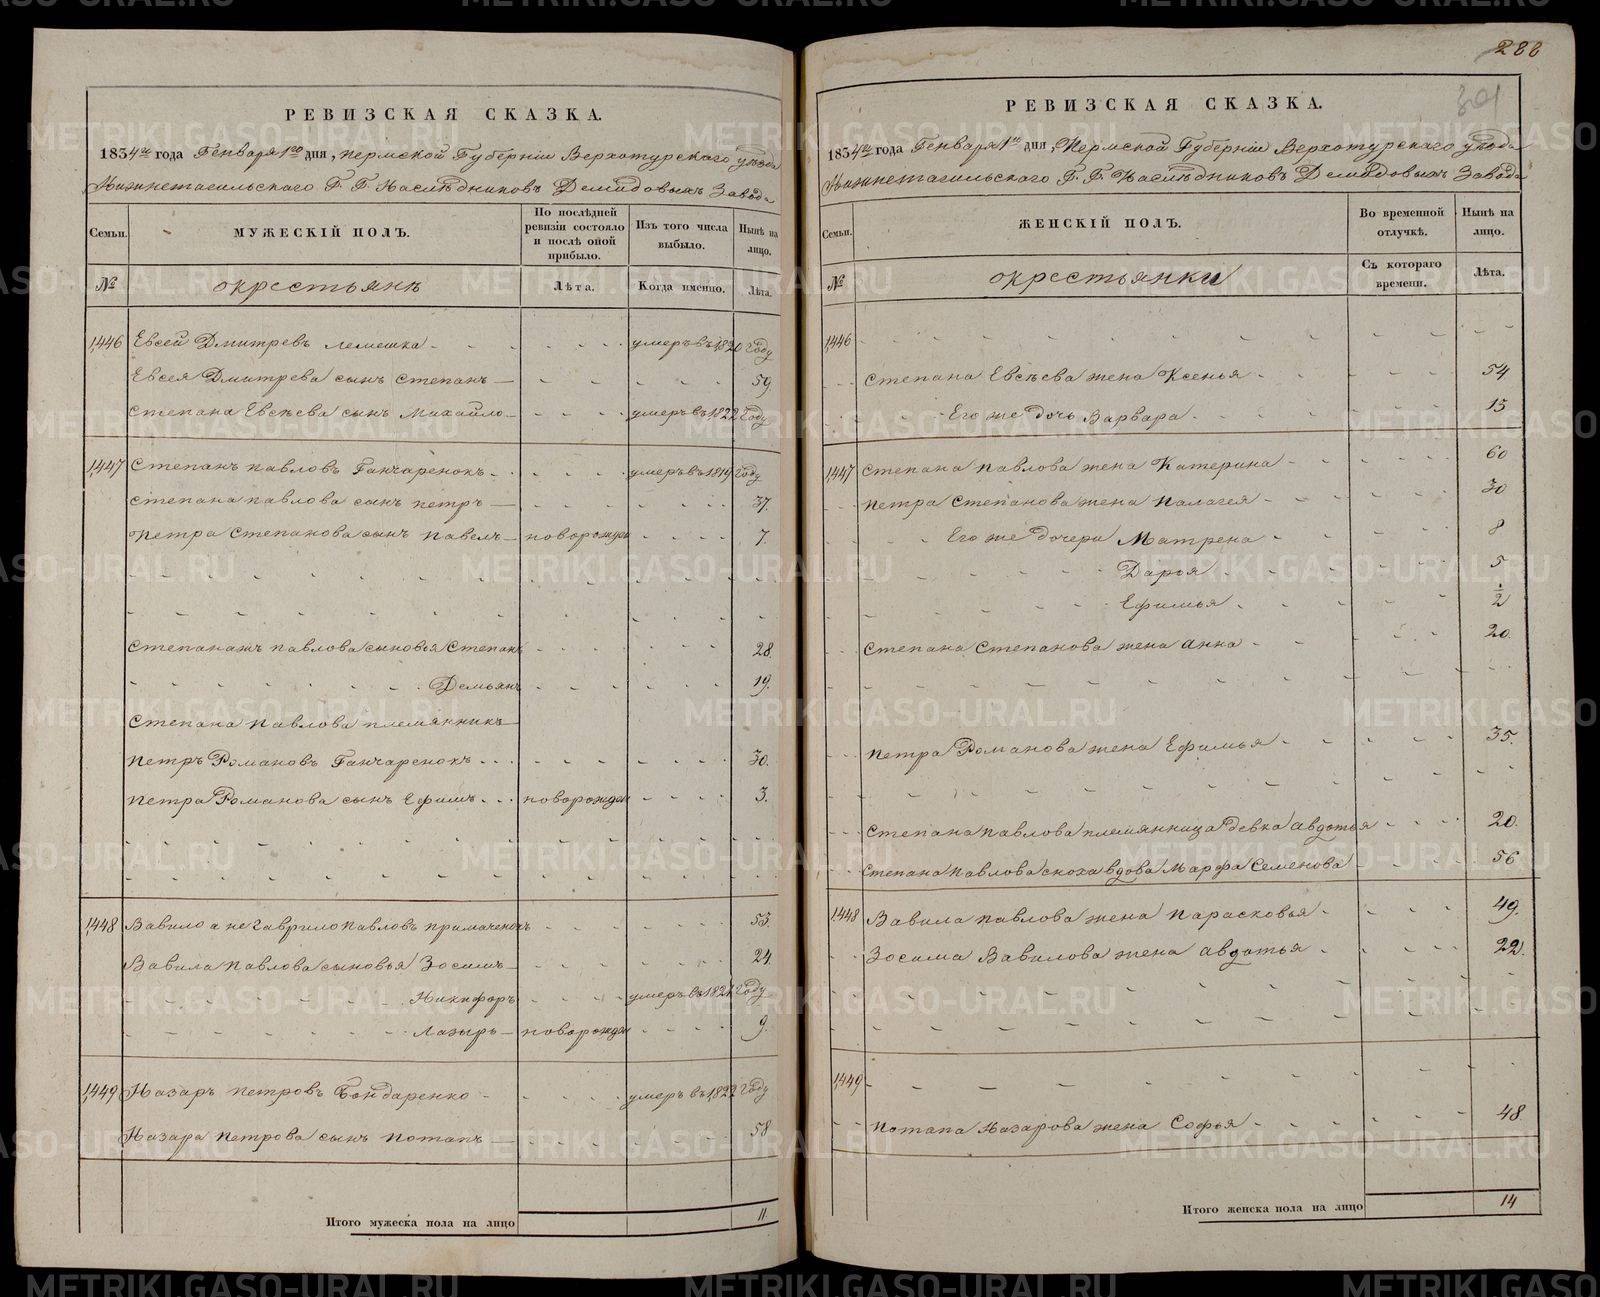 288
301
РЕВИЗСКАЯ СКАЗКА.
1834го года Генваря 1го дня, Пермской Губернiи Верхотурскаго уѣзда
Нижнетагильскаго Г. Г. Наслѣдниковъ Демидовыхъ Завода
Семьи. МУЖЕСКIЙ ПОЛЪ. По послѣдней ревизiи состояло и послѣ оной прибыло. Изъ того числа выбыло. Нынѣ на лицо.
№ окрестьянѣ Лѣта. Когда именно. Лѣта.
1,446 Евсей Дмитревъ Лемешка - умеръ въ 1,820 Году
Евсея Дмитрева сынъ Степанъ - 59
Степана Евсѣева сынъ Михайло - умеръ въ 1,822 Году
1,447 Степанъ Павловъ Ганчаренокъ - умеръ въ 1819 Году
Степана Павлова сынъ Петръ - 37.
Петра Степанова сынъ Павелъ - новорожден 7.
Степана жъ Павлова сыновья Степанъ 28.
Демьянъ 19.
Степана Павлова племянникъ
Петръ Романовъ Ганчаренокъ 30.
Петра Романова сынъ Ефимъ новорожден 3.
1,448 Вавило а не Гаврило Павловъ Примаченокъ 53.
Вавила Павлова сыновья Зосимъ 24.
Никифоръ умеръ въ 1,821 Году
Лазырь новорожден 9.
1,449 Назаръ Петровъ Бондаренко - умеръ въ 1,822 Году
Назара Петрова сынъ Потапъ 58
Итого мужеска пола на лицо 11.
РЕВИЗСКАЯ СКАЗКА.
1834го года Генваря 1го дня, Пермской Губернiи Верхотурскаго уѣзда
Нижнетагильскаго Г. Г. Наслѣдниковъ Демидовыхъ Завода
Семьи. ЖЕНСКIЙ ПОЛЪ. Во временной отлучкѣ. Нынѣ на лицо.
№ окрестьянки Съ котораго времени. Лѣта.
1,446
Степана Евсѣева жена Ксенья 54
Его же дочь Варвара 15
1,447 Степана Павлова жена Катерина 60
Петра Степанова жена Палагея 30
Его же дочери Матрена 8
Дарья 5
Ефимья 1/2
Степана Степанова жена Анна 20.
Петра Романова жена Ефимья 35.
Степана Павлова племянница девка Авдотья 20.
Степана Павлова сноха вдова Марфа Семенова 56
1,448 Вавила Павлова жена Парасковья 49.
Зосима Вавилова жена Авдотья 22.
1,449
Потапа Назарова жена Софья 48
Итого женска пола на лицо 14
METRIKI.GASO-URAL.RU